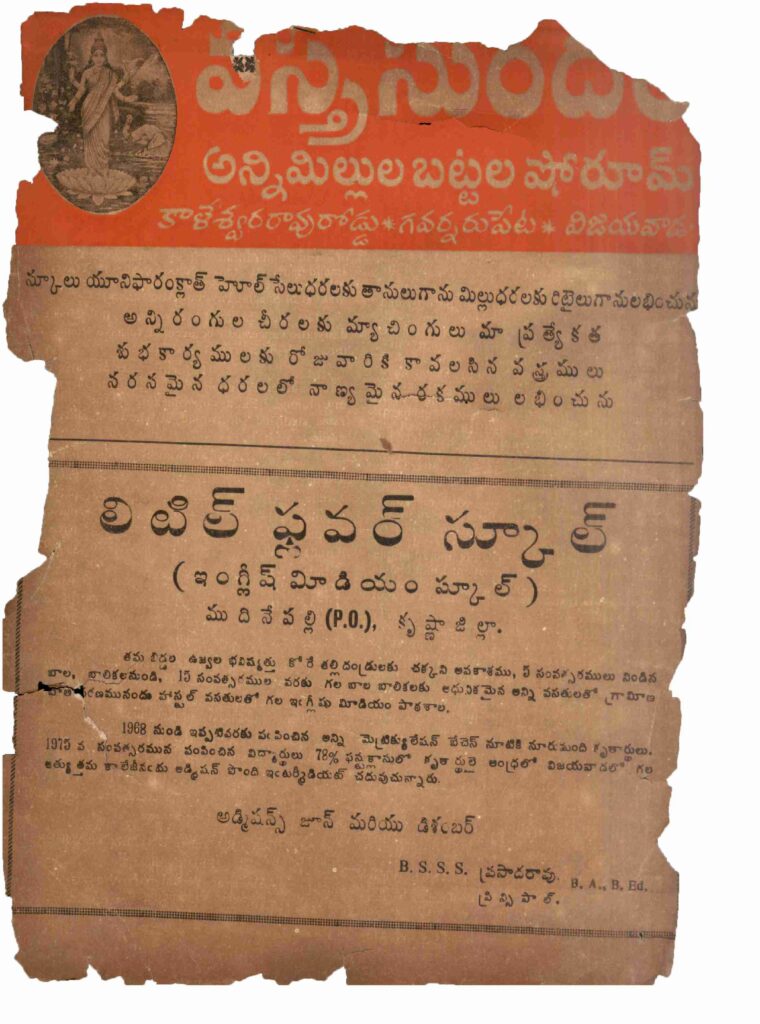 వస్త్రసుందరి
అన్నిమిల్లుల బట్టల షోరూమ్
కాళేశ్వరరావురోడ్డు * గవర్నరుపేట * విజయవాడ
స్కూలు యూనిఫారంక్లాత్ హెూల్ సేలుధరలకు తానులుగాను మిల్లుధరలకు రిటైలుగానులభించును
అన్నిరంగుల చీరలకు మ్యాచింగులు మా ప్రత్యేకత
శుభకార్యములకు రోజువారికి కావలసిన వస్త్రములు
సరసమైన ధరలలో నాణ్యమైన రకములు లభించును
లిటిల్ ఫ్లవర్ స్కూల్
(ఇంగ్లీష్ మీడియం స్కూల్)
ముదినేపల్లి (P.O.), కృష్ణాజిల్లా.
తమ బిడ్డల ఉజ్వల భవిష్యత్తు కోరే తల్లిదండ్రులకు చక్కని అవకాశము, 5 సంవత్సరములు నిండిన
బాల, బాలికలనుండి, 15 సంవత్సరముల వరకు గల బాల బాలికలకు అధునికమైన అన్ని వసతులతో గ్రామీణ
వాతావరణమునందు హాస్టల్ వసతులతో గల ఇంగ్లీషు మీడియం పాఠశాల.
1968 నుండి ఇప్పటివరకు పంపించిన అన్ని మెట్రిక్యులేషన్ బేచెస్ నూటికి నూరుమంది కృతార్థులు.
1975 వ సంవత్సరమున పంపించిన విద్యార్థులు 78% ఫస్టుక్లాసులో కృతార్థులై ఆంధ్రలో విజయవాడలో గల
అత్యుత్తమ కాలేజీనందు అడ్మిషన్ పొంది ఇంటర్మీడియట్ చదువుచున్నారు.
అడ్మిషన్స్ జూన్ మరియు డిశంబర్
B. S. S. S. ప్రసాదరావు, B. A., B. Ed.
ప్రిన్సిపాల్.